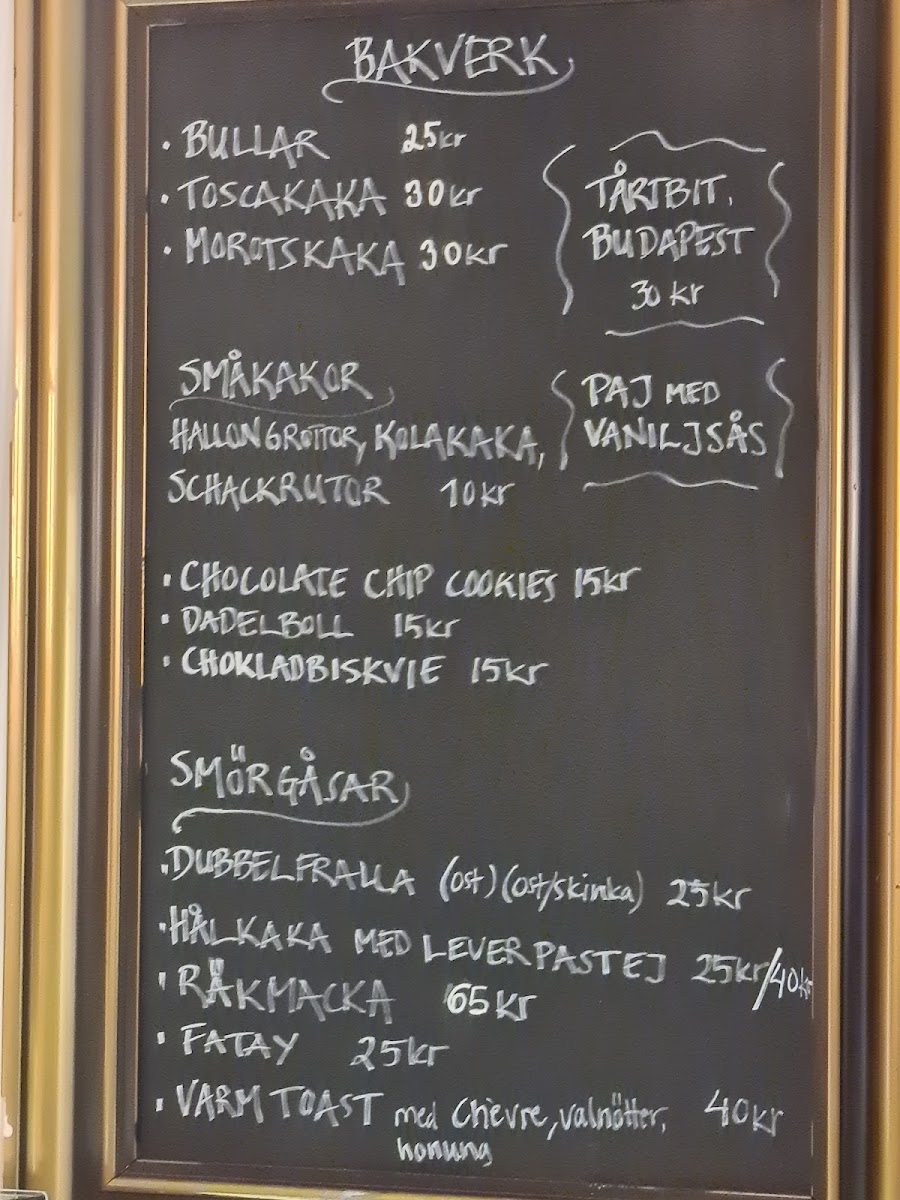 BAKVERK
· BULLAR 25kr
· TOSCAKAKA 30kr
· MOROTSKAKA 30kr
TÅRTBIT.
BUDAPEST
30 kr
SMÅKAKOR
HALLONGROTTOR, KOLAKAKA,
SCHACKRUTOR 10kr
PAJ MED
VANILJSÅS
· CHOCOLATE CHIP COOKIES 15kr
· DADELBOLL 15kr
· CHOKLADBISKVIE 15kr
SMÖRGÅSAR
· DUBBELFRALLA (ost) (ost/skinka) 25kr
· HÅLKAKA MED LEVERPASTEJ 25kr/40kr
· RÄKMACKA 65kr
· FATAY 25kr
· VARM TOAST med Chèvre, valnötter, 40kr
honung